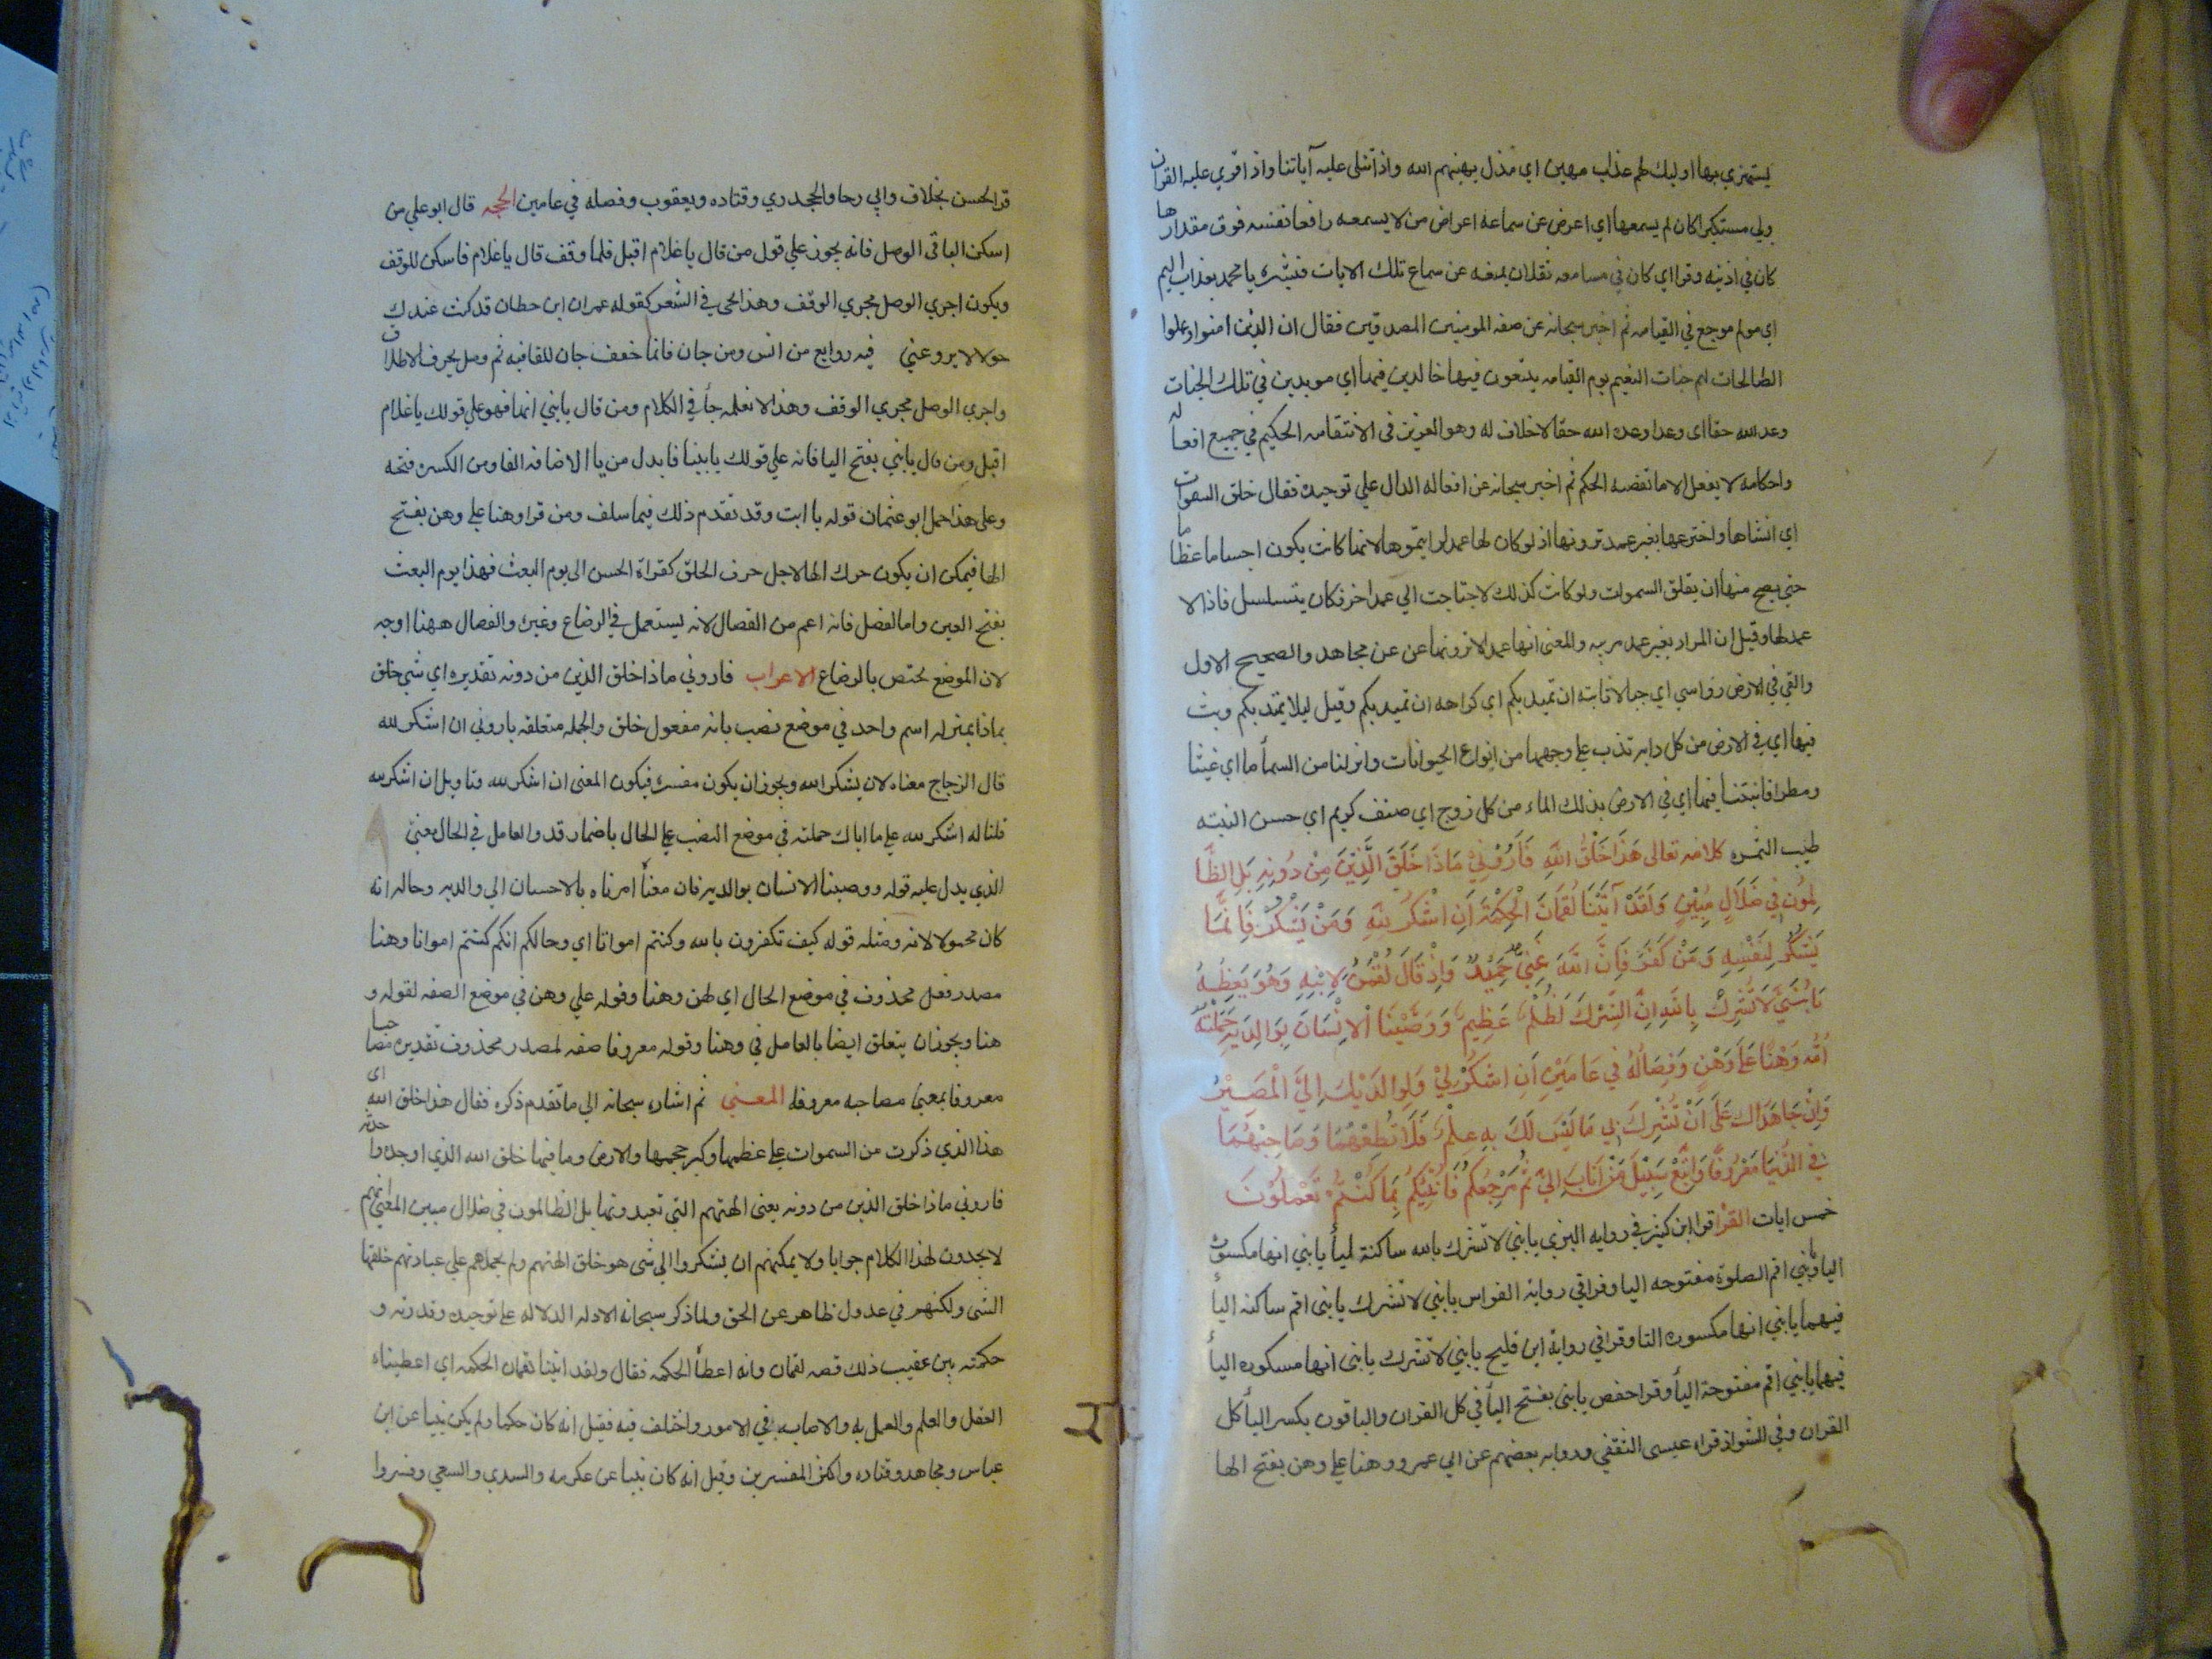 يستهزي بها اوليك لهم عذاب مهين اي مذل يهينهم الله واذا تتلى عليه آياتنا واذا قري عليه القران
ولي مستكبرا كان لم يسمعها اي اعرض عن سماعه اعراض من لا يسمعه رافعا نفسه فوق مقدارها
كان في اذنيه وقرا اي كان في مسامعه ثقلا ان يمنعه عن سماع تلك الايات فبشره يا محمد بعذاب اليم
اي مولم موجع في القيامه ثم اخبر سبحانه عن صفه المومنين المصدقين فقال ان الذين امنوا وعملوا
الصالحات لهم جنات النعيم يوم القيامه يتنعون فيها خالدين فيها اي موبدين في تلك الجنات
وعد الله حقا اى وعدا وعده الله حقا لا خلاف له وهو العزيز في الانتقامه الحكيم في جميع افعاله
واحكامه لا يفعل الا ما تقضيه الحكم ثم اخبر سبحانه عن افعاله الدال علي توحيده فقال خلق السموات
اي انشاها واخترعها بغير عمد ترونها اذ لو كان لها عمد لرايتموها لانها كانت يكون اجساما عظاما
حتي يصح منها ان يقلق السموات ولو كانت كذلك لاحتاجت الي عمد اخر فكان يتسلسل فاذا لا
عمد لها وقيل ان المراد بغير عمد مريه والمعنى انها عمد لا ترونها عن عن مجاهد والصحيح الاول
والقي في الارض رواسي اي جبالا ثابته ان تميد بكم اي كراهه ان تميد بكم وقيل ليلا يمتد بكم وبث
فيها اي في الارض من كل دابه تدب علي وجهها من انواع الحيوانات وانزلنا من السمآ ما اي غيثا
ومطرا فانبتنا فيها اي في الارض بذلك الماء من كل زوج اي صنف كريم اي حسن النبته
طيب الثمره كلامه تعالى هَذَا خَلْقُ اللهِ فَأَرُوْنِيْ مَاذَا خَلَقَ الَّذِيْنَ مِنْ دُونِهِ بَلِ الظَّا
لِمُونَ فِي ضَلَالٍ مُبِيْنٍ وَلَقَدْ آتَيْنَا لُقْمَانَ الْحِكْمَةَ اَنِ اشْكُرْ لِلهِ وَمَنْ يَشْكُرْ فَاِنَّمَا
يَشْكُرُ لِنَفْسِهِ وَمَنْ كَفَرَ فَاِنَّ اللهَ غَنِيٌّ حَمِيْدٌ وَاِذْ قَالَ لُقْمٰنُ لِابْنِهِ وَهُوَ يَعِظُهُ
يَا بُنَيَّ لَا تُشْرِكْ بِاللهِ اِنَّ الشِّرْكَ لَظُلْمٌ عَظِيْمٌ وَوَصَّيْنَا الْاِنْسَانَ بِوَالِدَيْهِ حَمَلَتْهُ
اُمُّهُ وَهْنًا عَلَى وَهْنٍ وَفِصَالُهُ فِي عَامَيْنِ اَنِ اشْكُرْ لِيْ وَلِوَالِدَيْكَ اِلَيَّ الْمَصِيْرُ
وَاِنْ جَاهَدَاكَ عَلَى اَنْ تُشْرِكَ بِي مَا لَيْسَ لَكَ بِهِ عِلْمٌ فَلَا تُطِعْهُمَا وَصَاحِبْهُمَا
فِي الدُّنْيَا مَعْرُوفًا وَاتَّبِعْ سَبِيْلَ مَنْ اَنَابَ اِلَيَّ ثُمَّ مَرْجِعُكُمْ فَاُنَبِّئُكُمْ بِمَا كُنْتُمْ تَعْمَلُوْنَ
خمس ايات القرا قرا ابن كثير في روايه البزي يا بني لا تشرك بالله ساكنة اليآ يا بني انها مكسورة
اليا يا بني اقم الصلوة مفتوحه اليا وقرا في رواية القواس يا بني لا تشرك يا بنى اقم ساكنه اليآ
فيهما يا بني انها مكسوره اليا وقرا في رواية ابن فليح يا بني لا تشرك يا بنى انها مسكوره اليآ
فيهما يا بني اقم مفتوحة اليآ وقرا حفص يا بنى بفتح اليآ في كل القران والباقون بكسر اليآ كل
القران وفي الشواذ قراه عيسى الثقفي وروايه بعضهم عن ابي عمرو وهنا علي وهن بفتح الها
قرا الحسن بخلاف وابي رجا والجحدري وقتاده ويعقوب وفصله في عامين الحجه قال ابو علي من
اسكن الباقى الوصل فانه يجوز علي قول من قال يا غلام اقبل فلما وقف قال يا غلام فاسكن للوقف
ويكون اجري الوصل مجري الوقف وهذا يجى في الشعر كقوله عمران ابن حطان قد كنت عندك
حولا لا يروعني فيه روايع من انس ومن جان فانما خفف جان للقافيه ثم وصل بحرف الاطلاق
واجرى الوصل مجرى الوقف وهذا لا نعلمه جآ في الكلام ومن قال يا بني انها فهو علي قولك يا غلام
اقبل ومن قال يا بني بفتح اليا فانه علي قولك يا بنيا فابدل من يا الاضافه الفا ومن الكسره فتحه
وعلى هذا حمل ابو عثمان قوله يا ابت وقد تقدم ذلك فيما سلف ومن قرا وهنا علي وهن بفتح
الها فيمكن ان يكون حرك الها لاجل حرف الحلق كقراة الحسن الى يوم البعث فهذا يوم البعث
بفتح العين واما الفصل فانه اعم من الفصال لانه يستعمل في الرضاع وغيره والفصال ههنا اوجه
لان الموضع يختص بالرضاع الاعراب فاروني ماذا خلق الذين من دونه تقديره اي شي خلق
بماذا بمنزله اسم واحد في موضع نصب بانه مفعول خلق والجمله متعلقه باروني ان اشكر لله
قال الزجاج معناه لان يشكر الله ويجوز ان يكون مفسره فيكون المعنى ان اشكر لله وتاويل ان اشكر لله
قلنا له اشكر لله علي ما اتاك حملته في موضع النصب علي الحال باضمار قد والعامل في الحال معني
الذي يدل عليه قوله ووصينا الانسان بوالديه فان معنآ امرناه بالاحسان الي والديه وحاله انه
كان محمولا لانه ومثله قوله كيف تكفرون بالله وكنتم امواتا اي وحالكم انكم كنتم امواتا وهنا
مصدر فعل محذوف في موضع الحال اي لهن وهنا وقوله علي وهن في موضع الصفه لقوله و
هنا ويجوز ان يتعلق ايضا بالعامل في وهنا وقوله معروفا صفه لمصدر محذوف تقديره مصاحبا
معروفا بمعنى مصاحبه معروفه المعني ثم اشاره سبحانه الي ما تقدم ذكره فقال هذا خلق الله اي
هذا الذي ذكرت من السموات علي عظمها وكبر حجمها والارض وما فيها خلق الله الذي اوجده واحدثه
فاروني ماذا خلق الذين من دونه يعني الهتهم التي تعبدونها بل الظالمون في ضلال مبين المعني انهم
لا يجدون لهذا الكلام جوابا ولا يمكنهم ان يشكروا الي شى هو خلق الهتهم ولم يحملهم علي عبادتهم خلقها
الشى ولكنهم في عدول ظاهر عن الحق ولما ذكر سبحانه الادله الداله علي توحيده وقدرته و
حكمته بين عقيب ذلك قصه لقمان وانه اعطآ الحكمه فقال ولقد اتينا لقمان الحكمه اي اعطيناه
العقل والعلم والعمل به والاصابه في الامور واختلف فيه فقيل انه كان حكيما ولم يكن نبيا عن ابن
عباس ومجاهد وقتاده واكثر المفسرين وقيل انه كان نبيا عن عكرمه والسدي والشعبي وفسروا